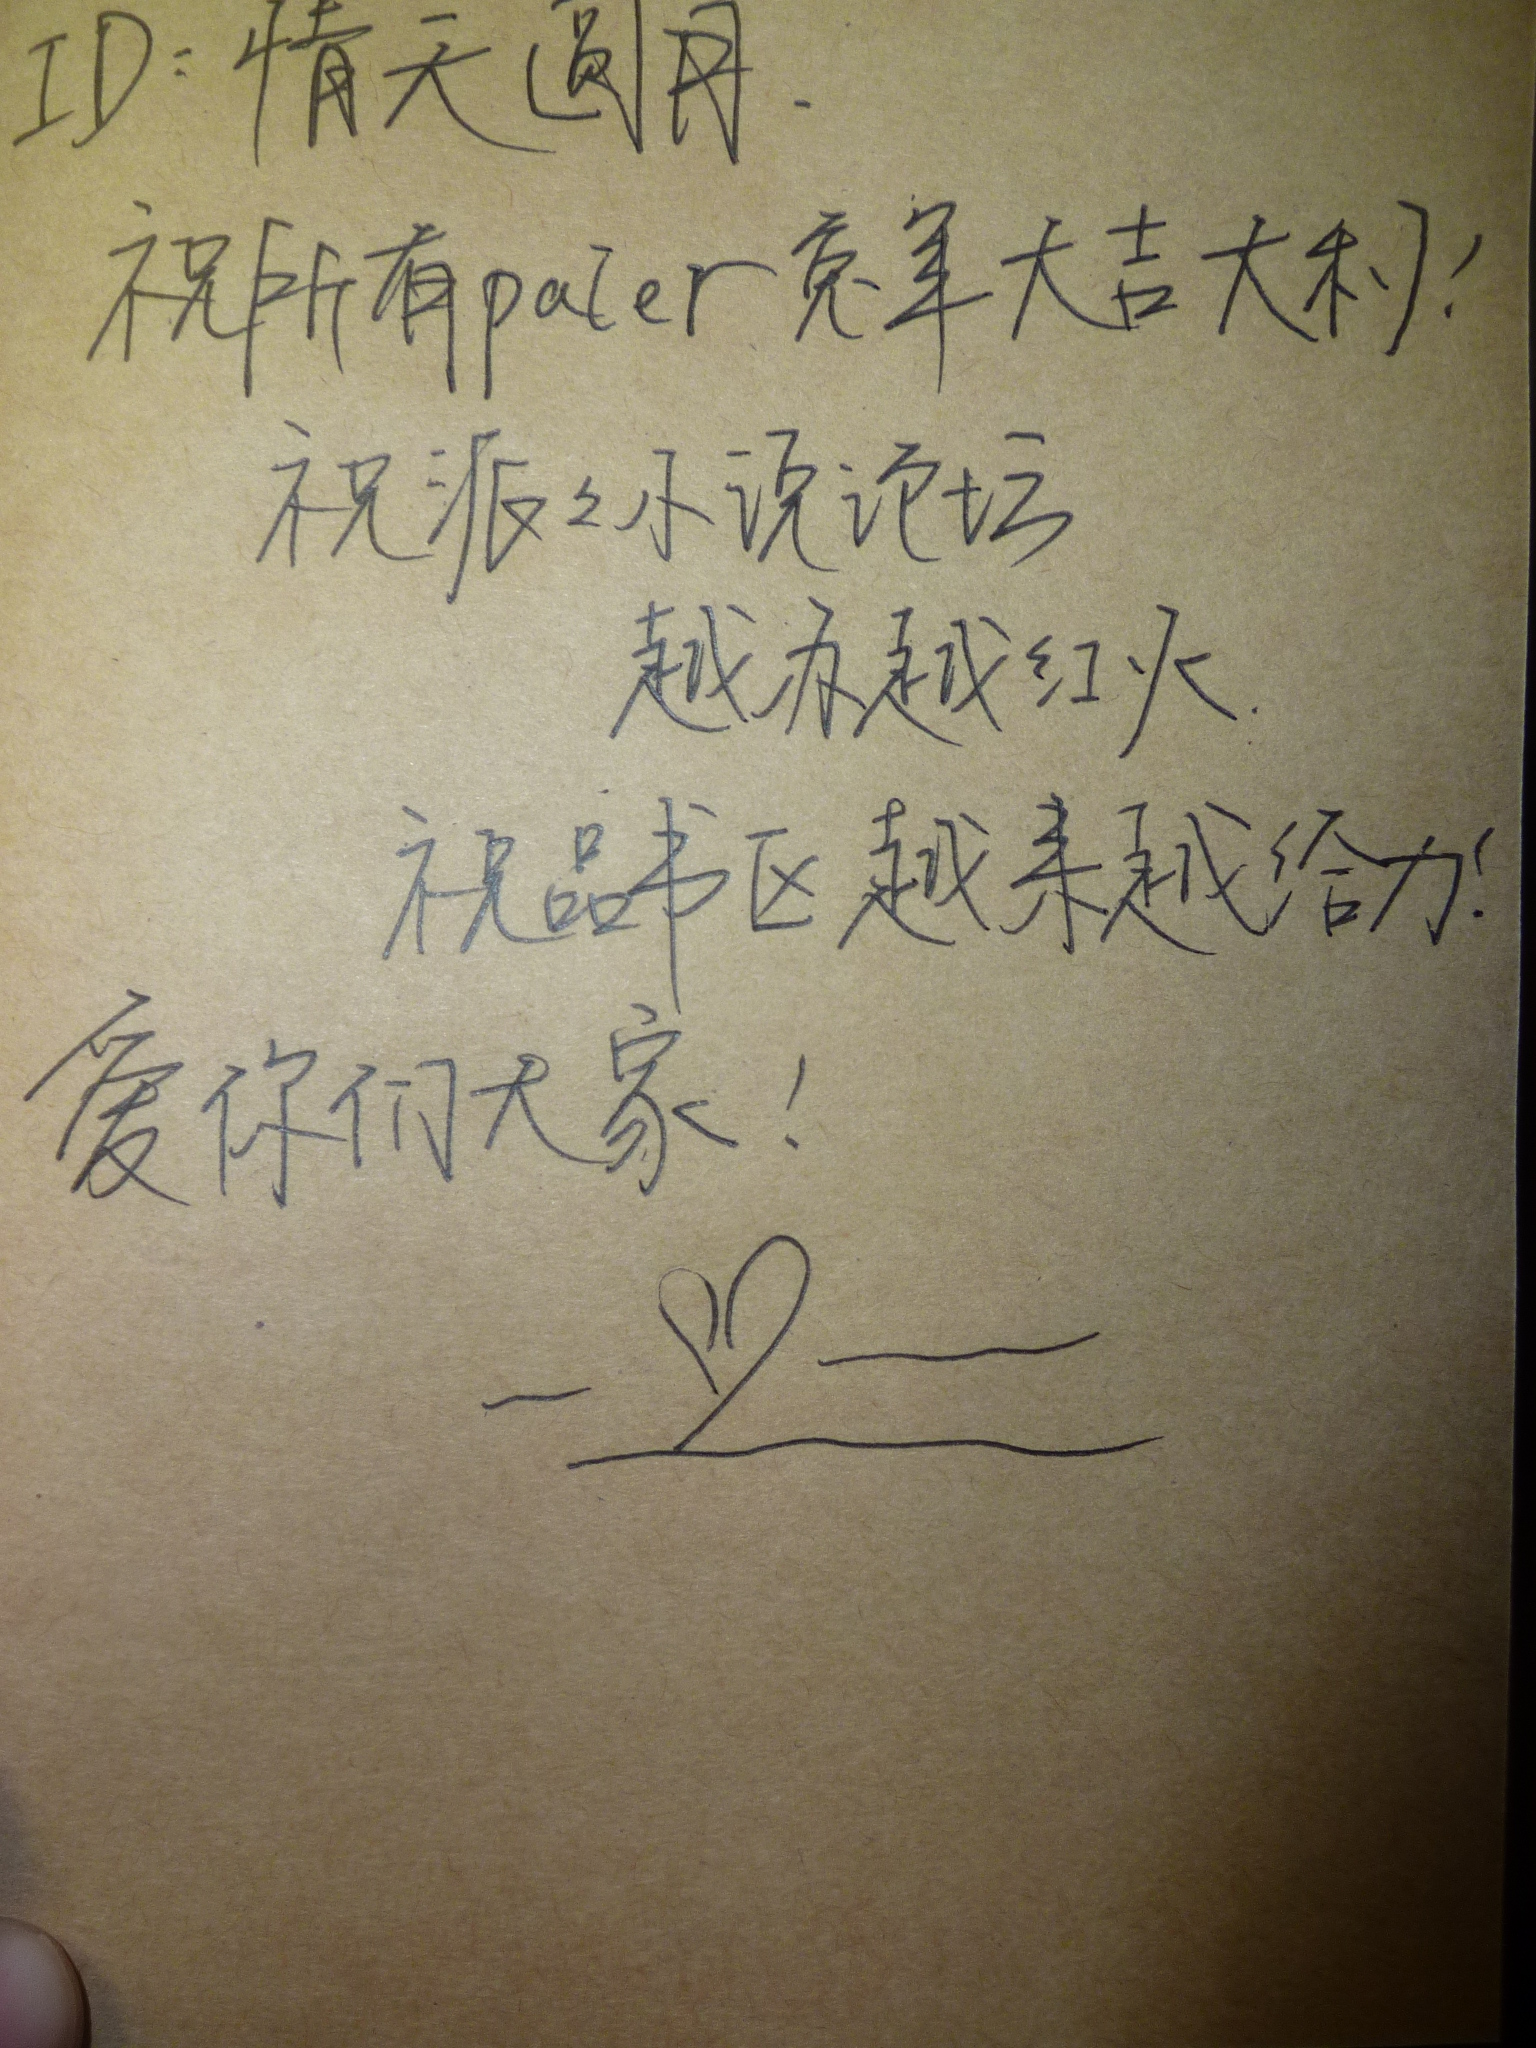 ID:情天圆月.
祝所有paier兔年大吉大利!
祝派々小说论坛
越办越红火.
祝品书区越来越给力!
爱你们大家!